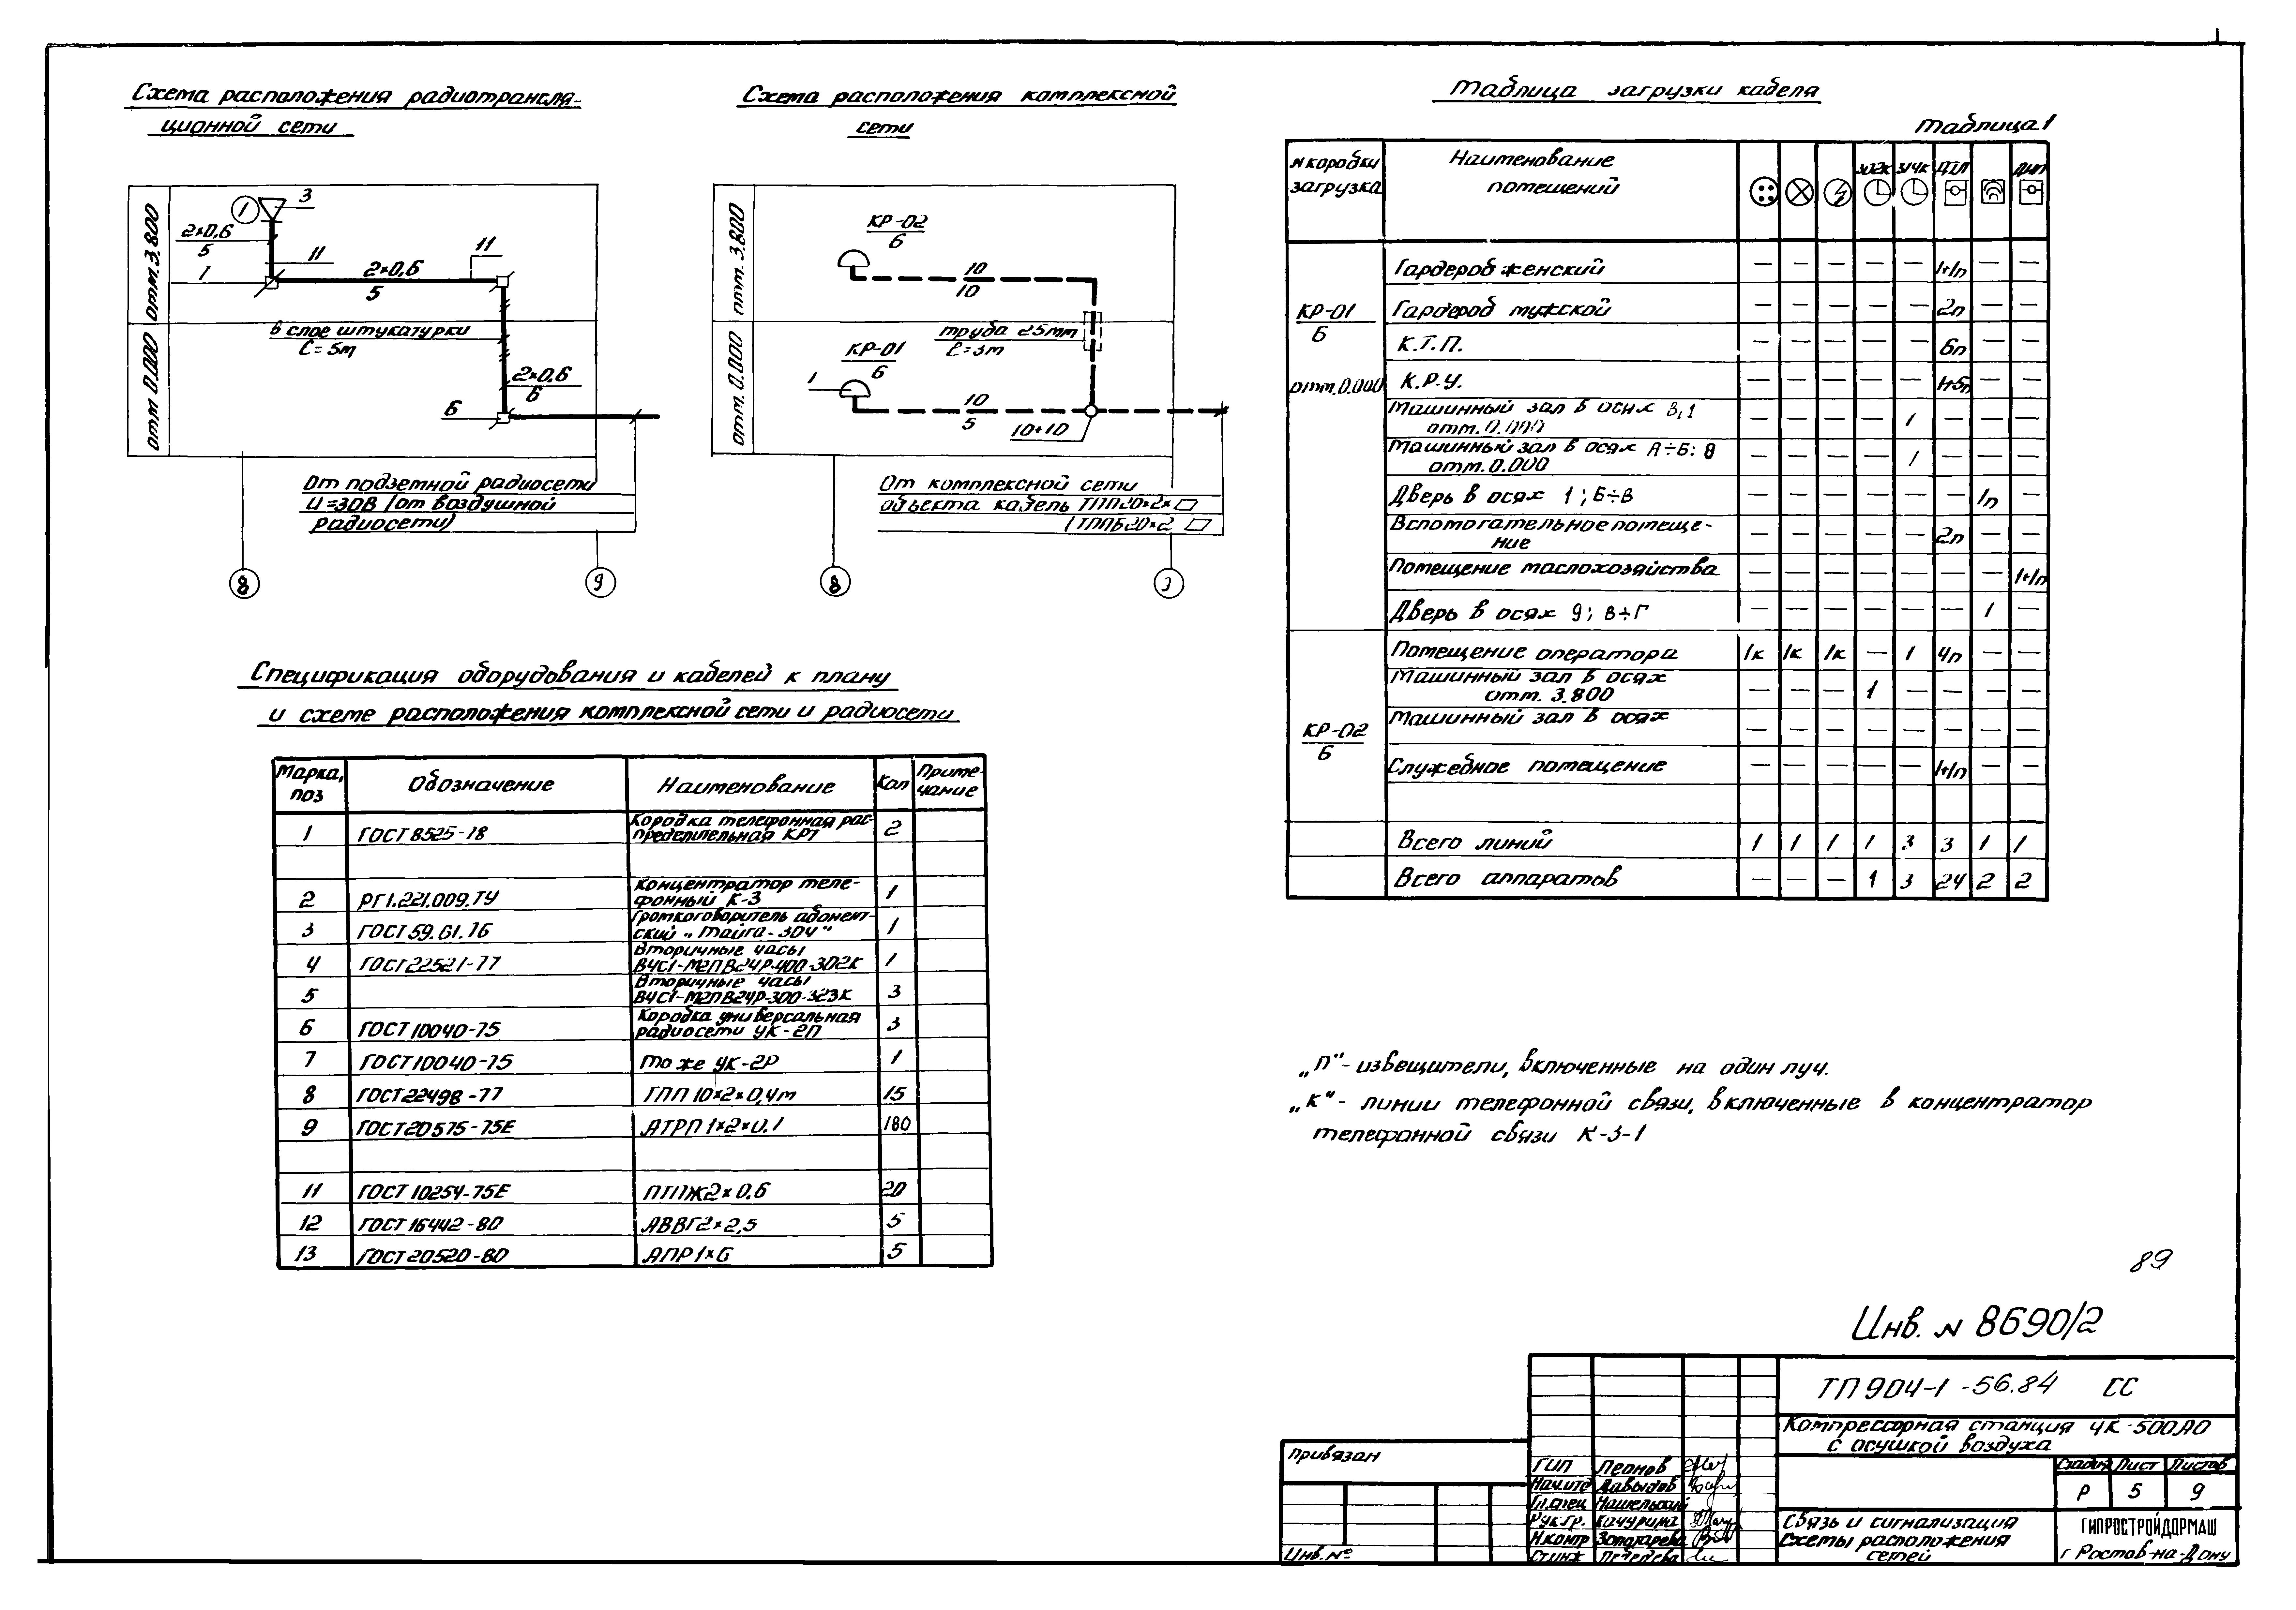 Схема расположения радиотрансля-
ционной сети
отм.3.800
отм 0.000
1
3
2×0,6
5
11
1
2×0,6
5
11
в слое штукатурки
ℓ=5м
2×0,6
6
6
От подземной радиосети
U=30В (от воздушной
радиосети)
8
9
Схема расположения комплексной
сети
отм. 3.800
отм. 0.000
КР-02
Б
10
10
труба 25мм
ℓ=3м
КР-01
Б
1
10
5
10+10
От комплексной сети
объекта кабель ТПП20×2×▱
(ТППБ20×2 ▱
8
Таблица загрузки кабеля
Таблица1
N коробки загрузка
Наименование помещений
ДТЛ
КР-01
Б
отм.0.000
Гардероб женский — — — — — 1+1п — —
Гардероб мужской — — — — — 2п — —
К.Т.П. — — — — — 6п — —
К.Р.У. — — — — — 1+5п — —
Машинный зал в осях В,1
отм. 0.000 — — — — 1 — — —
Машинный зал в осях А÷Б: 8
отм. 0.000 — — — — 1 — — —
Дверь в осях 1; Б÷В — — — — — — 1п —
Вспомогательное помеще-
ние — — — — — 2п — —
Помещение маслохозяйства — — — — — — — 1+1п
Дверь в осях 9; В÷Г — — — — — — 1 —
КР-02
Б
Помещение оператора 1к 1к 1к — 1 4п — —
Машинный зал в осях
отм. 3.800 — — — 1 — — — —
Машинный зал в осях — — — — — — — —
Служебное помещение — — — — — 1+1п — —
Всего линий 1 1 1 1 3 3 1 1
Всего аппаратов — — — 1 3 24 2 2
Спецификация оборудования и кабелей к плану
и схеме расположения комплексной сети и радиосети
Марка, поз Обозначение Наименование Кол Приме-чание
1 ГОСТ 8525-78 Коробка телефонная рас-
пределительная КРТ 2
2 РГ1.221.009.ТУ Концентратор теле-
фонный К-3 1
3 ГОСТ 59.61.76 Громкоговоритель абонент-
ский „Тайга-304“ 1
4 ГОСТ22521-77 Вторичные часы
ВЧС1-М2ПВ24Р-400-302К 1
5 Вторичные часы
ВЧС1-М2ПВ24Р-300-323К 3
6 ГОСТ10040-75 Коробка универсальная
радиосети УК-2П 3
7 ГОСТ10040-75 То же УК-2Р 1
8 ГОСТ22498-77 ТПП 10×2×0,4м 15
9 ГОСТ20575-75Е АТРП 1×2×0.7 180
11 ГОСТ 10254-75Е ПТПЖ2×0,6 20
12 ГОСТ16442-80 АВВГ2×2,5 5
13 ГОСТ20520-80 АПР 1×6 5
„п“- извещатели, включенные на один луч.
„к“- линии телефонной связи, включенные в концентратор
телефонной связи К-3-1
89
Инв. N 8690/2
Привязан
Инв. №
ГИП Леонов
Нач.отд Давыдов
Гл.спец
Рук.гр. Качурина
Н.контр
Ст.инж Лебедева
ТП 904-1-56.84 СС
Компрессорная станция 4К-500АО
с осушкой воздуха
Стадия Лист Листов
Р 5 9
Связь и сигнализация
Схемы расположения
сетей
ГИПРОСТРОЙДОРМАШ
г Ростов-на-Дону